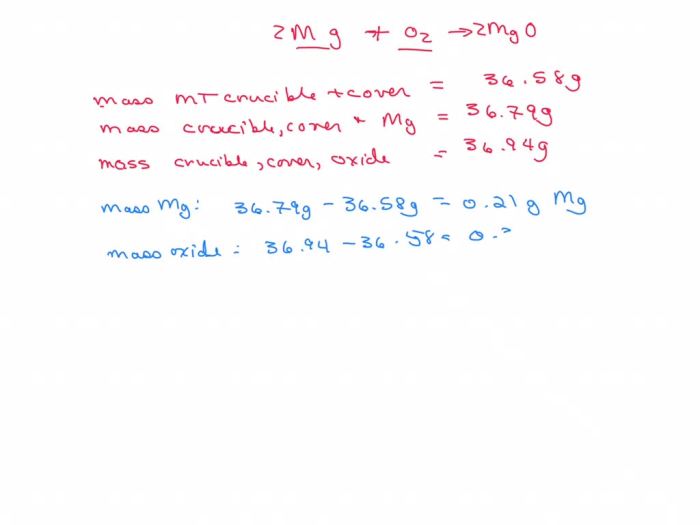 2Mg + O2 → 2MgO
mass mT crucible + cover = 36.58g
mass crucible, cover + Mg = 36.79g
mass crucible, cover, oxide = 36.94g
mass Mg: 36.79g - 36.58g = 0.21g Mg
mass oxide: 36.94 - 36.58 = 0.